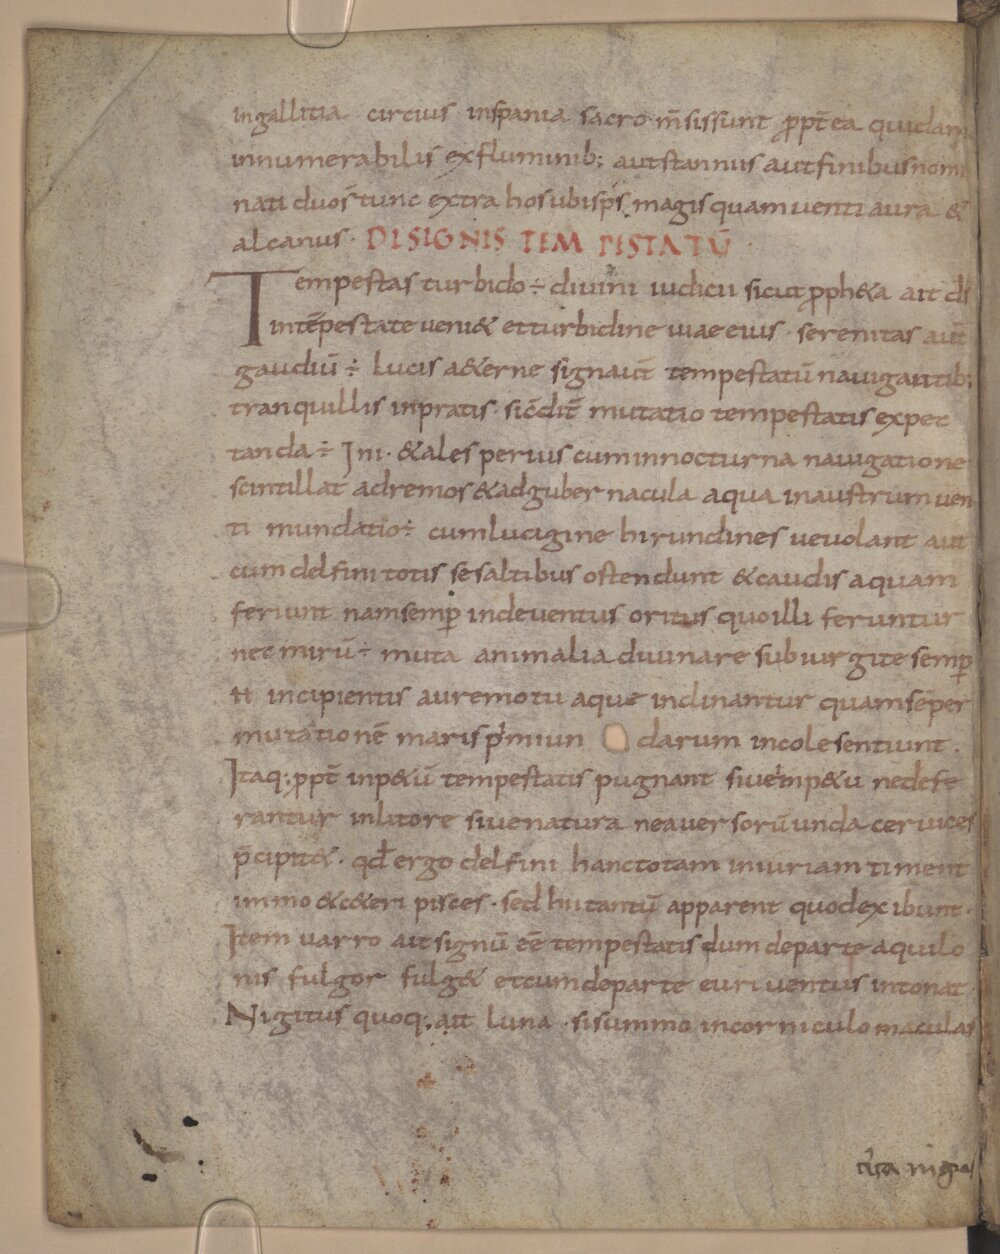 ingallitia · circius inspania sacro m̄sissunt ꝓpt̄ea quidam
innumerabilis exfluminib; autstannis autfinibusnomi
nati duos tunc extra hos ubisp̄s magis quam venti aura &
alcanus · DISIGNIS TEM PISTATŪ
Tempestas turbido ÷ divini iudicii sicut ꝓph&a ait d̄s
intēpestate ueni& etturbidine uiae eius · serenitas aut̄
gaudiū ÷ lucis a&erne signaut̄ tempestatū nauigantib;
tranquillis inpratis · sic̄dit̄ mutatio tempestatis expec
tanda ÷ Ini · &ales perius cuminnocturna nauigatione
scintillat adremos &adgubernacula aqua inaustrum uen
ti mundatio ÷ cumlucigine hirundines uevolant aut
cum delfini totis sesaltibus ostendunt &caudis aquam
feriunt namsemꝑ indeventus oritus quo illi feruntur
nec mirū ÷ muta animalia diuinare sub iurgite semꝑ
n̄ incipientis auremotu aque inclinantur quamsēper
mutationē maris p̄miun darum incole sentiunt .
Itaq; ꝓpt̄ inp&ū tempestatis pugnant siue inp&u nedefe
rantur inlitore siuenatura neauersorū unda ceruices
p̄cipit& · qd̄ ergo delfini hanctotam iniuriam timent
immo &c&eri pisces · sed hi tantū apparent quodexibunt ·
Item uarro ait signū eē tempestatis dum departe aquilo
nis fulgor fulg& etcumdeparte euri uentus intonat
Nigitus quoq; ait luna · sisummo incorniculo maculas